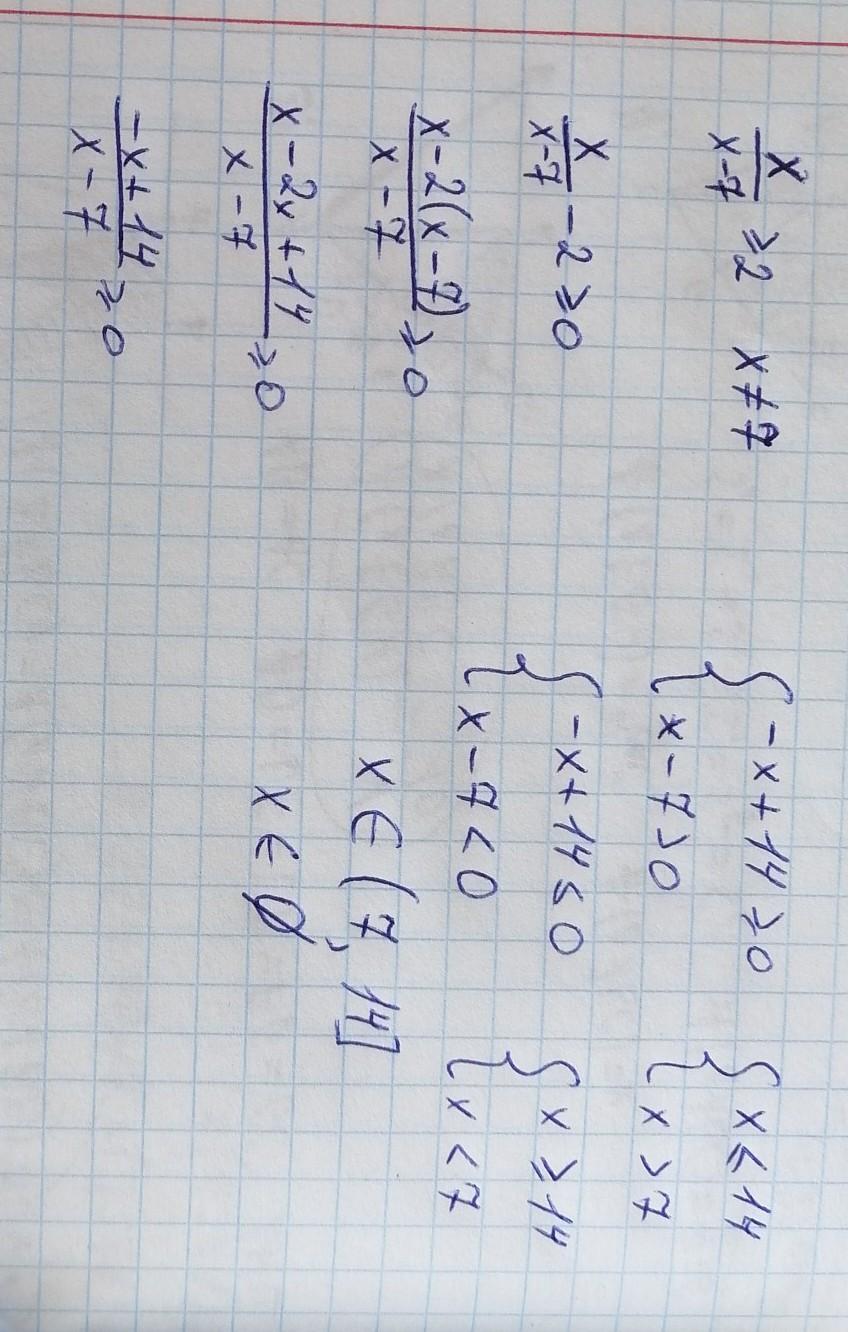 x/(x-7) ≥ 2   x ≠ 7
x/(x-7) - 2 ≥ 0
(x - 2(x - 7))/(x - 7) ≥ 0
(x - 2x + 14)/(x - 7) ≥ 0
(-x + 14)/(x - 7) ≥ 0
{ -x + 14 ≥ 0   { x ≤ 14
{ x - 7 > 0   { x > 7
{ -x + 14 ≤ 0   { x ≥ 14
{ x - 7 < 0   { x < 7
x ∈ (7, 14]
x ∈ ∅